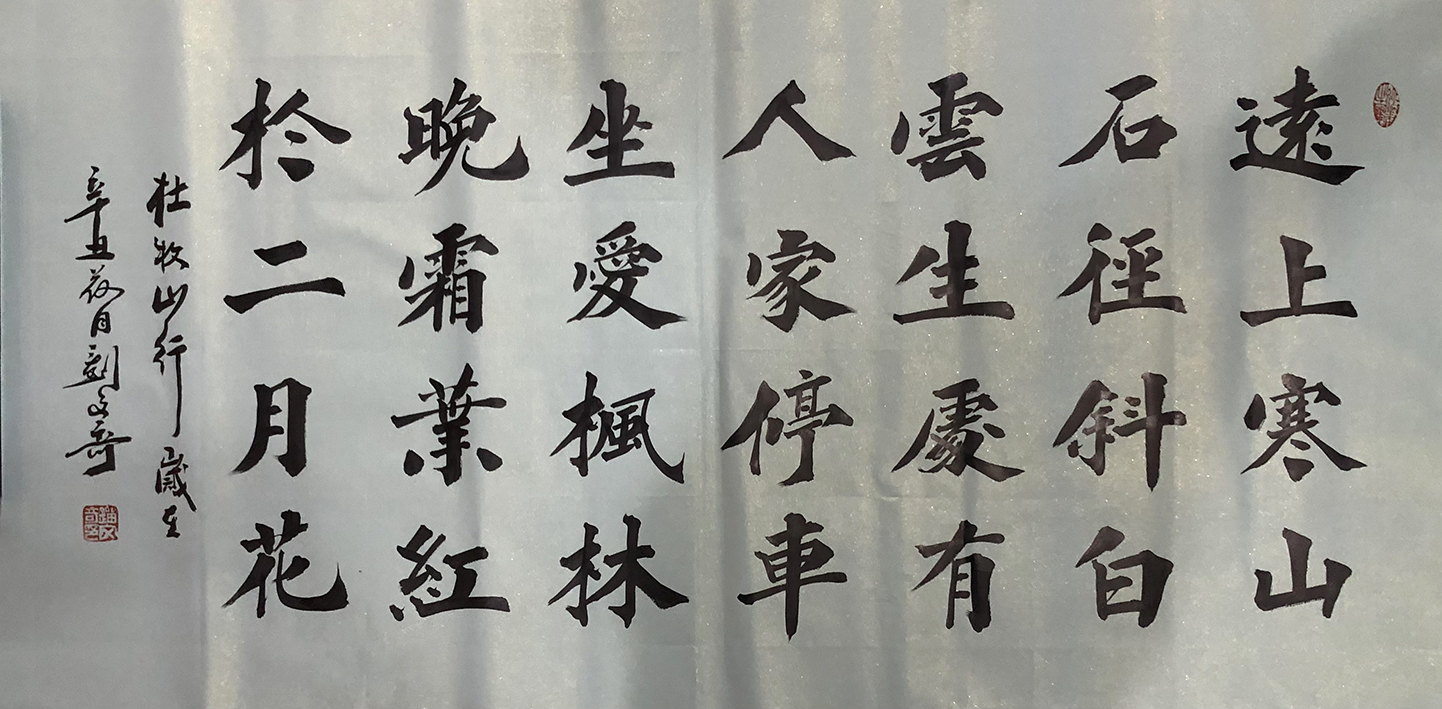 遠上寒山
石徑斜白
雲生處有
人家停車
坐愛楓林
晚霜葉紅
於二月花
杜牧山行 歲在
辛丑荷月劉文奇